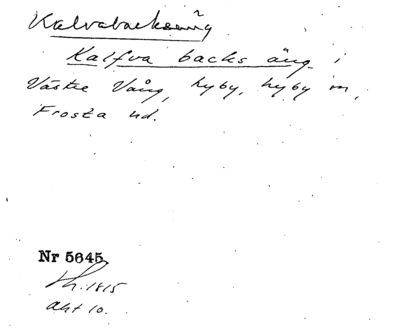 Kalvabacksäng
Kalfva backs äng i
Västre Vång, Hyby, Hyby sn,
Frosta hd.
Nr 5645
1815
akt 10.